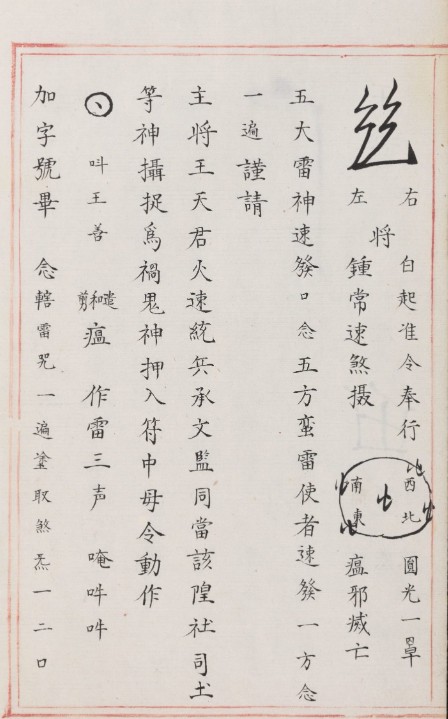 右 白起准令奉行 西北 圓光一罩
將
左 鍾常速煞摄 南東 瘟邪烕亡
五大雷神速發口念五方蛮雷使者速發一方念
一遍謹請
主將王天君火速統兵承文監同當該隍社司土
等神攝捉為禍鬼神押入符中毋令動作
叫王善 遣和剪瘟 作雷三声 唵吽吽
加字號畢 念轄雷咒一遍塗取煞炁一二口